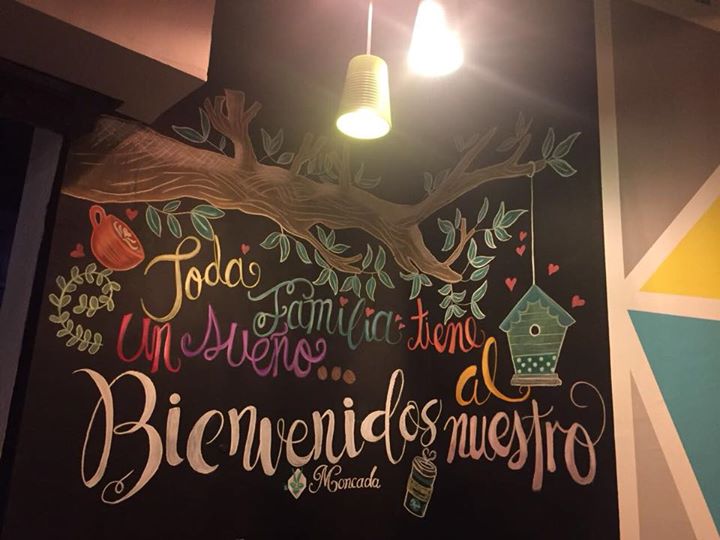 Toda Familia tiene
un sueño...
Bienvenidos al nuestro
Moncada